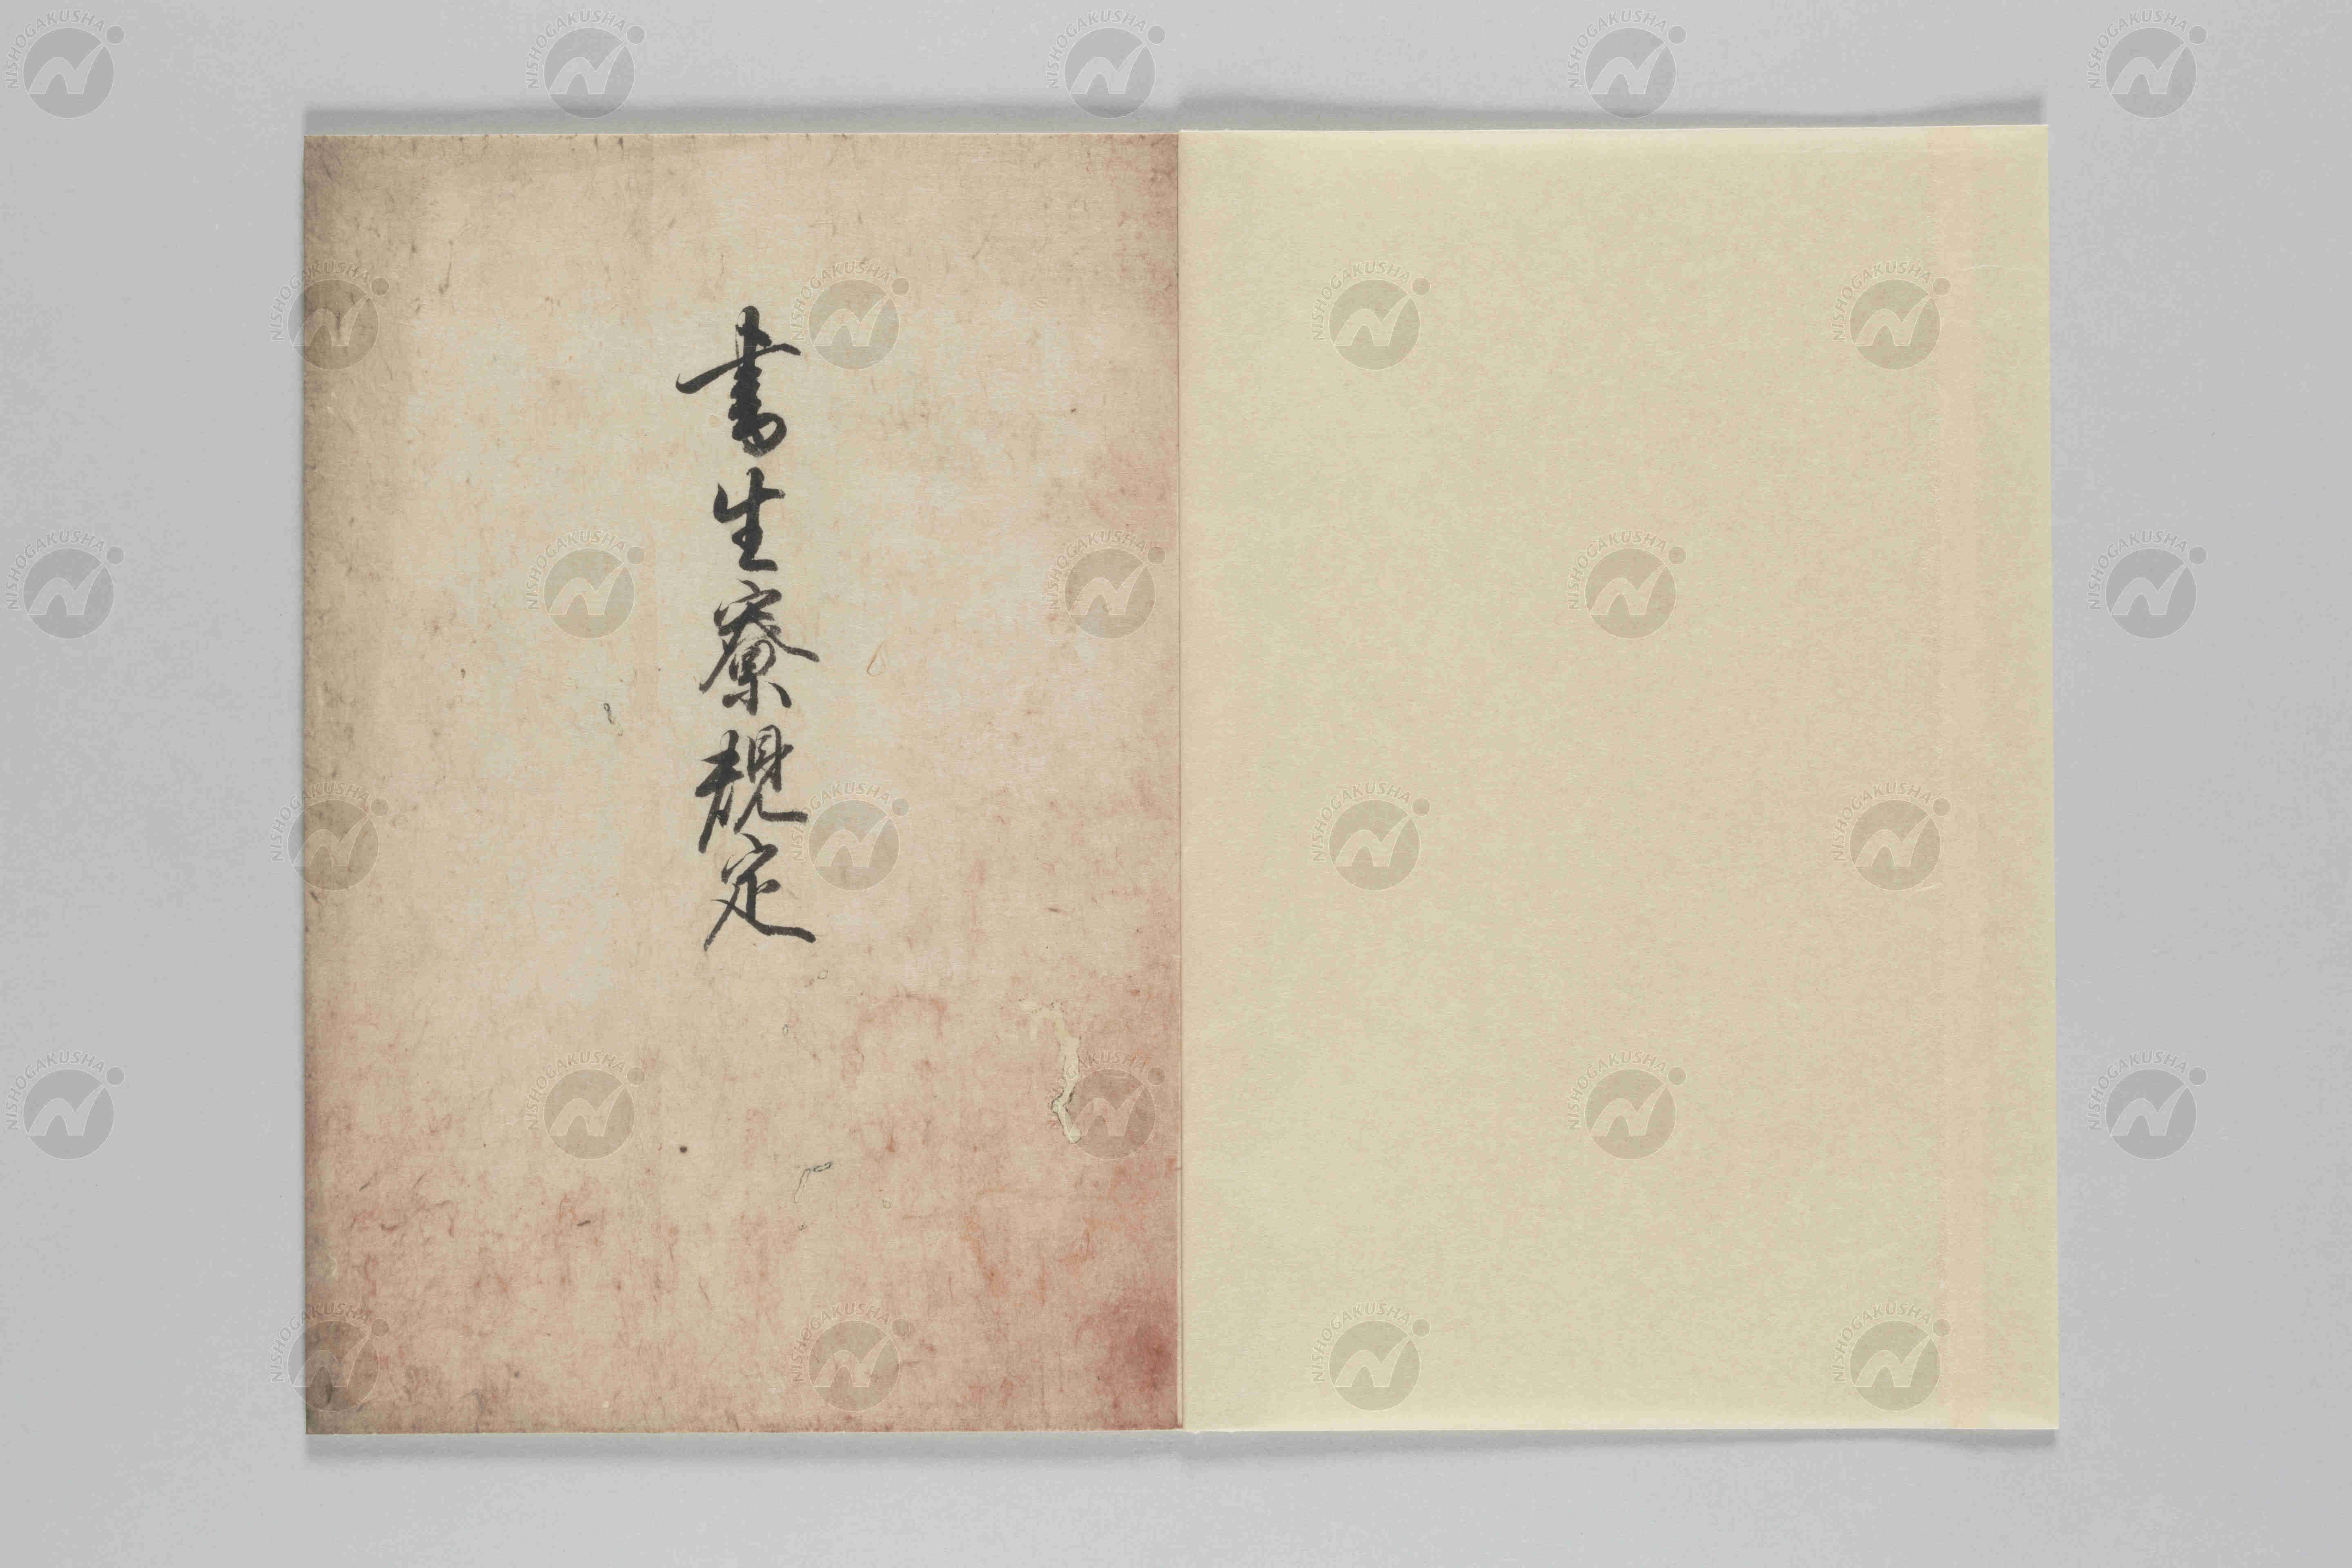 書生寮規定
NISHOGAKUSHA